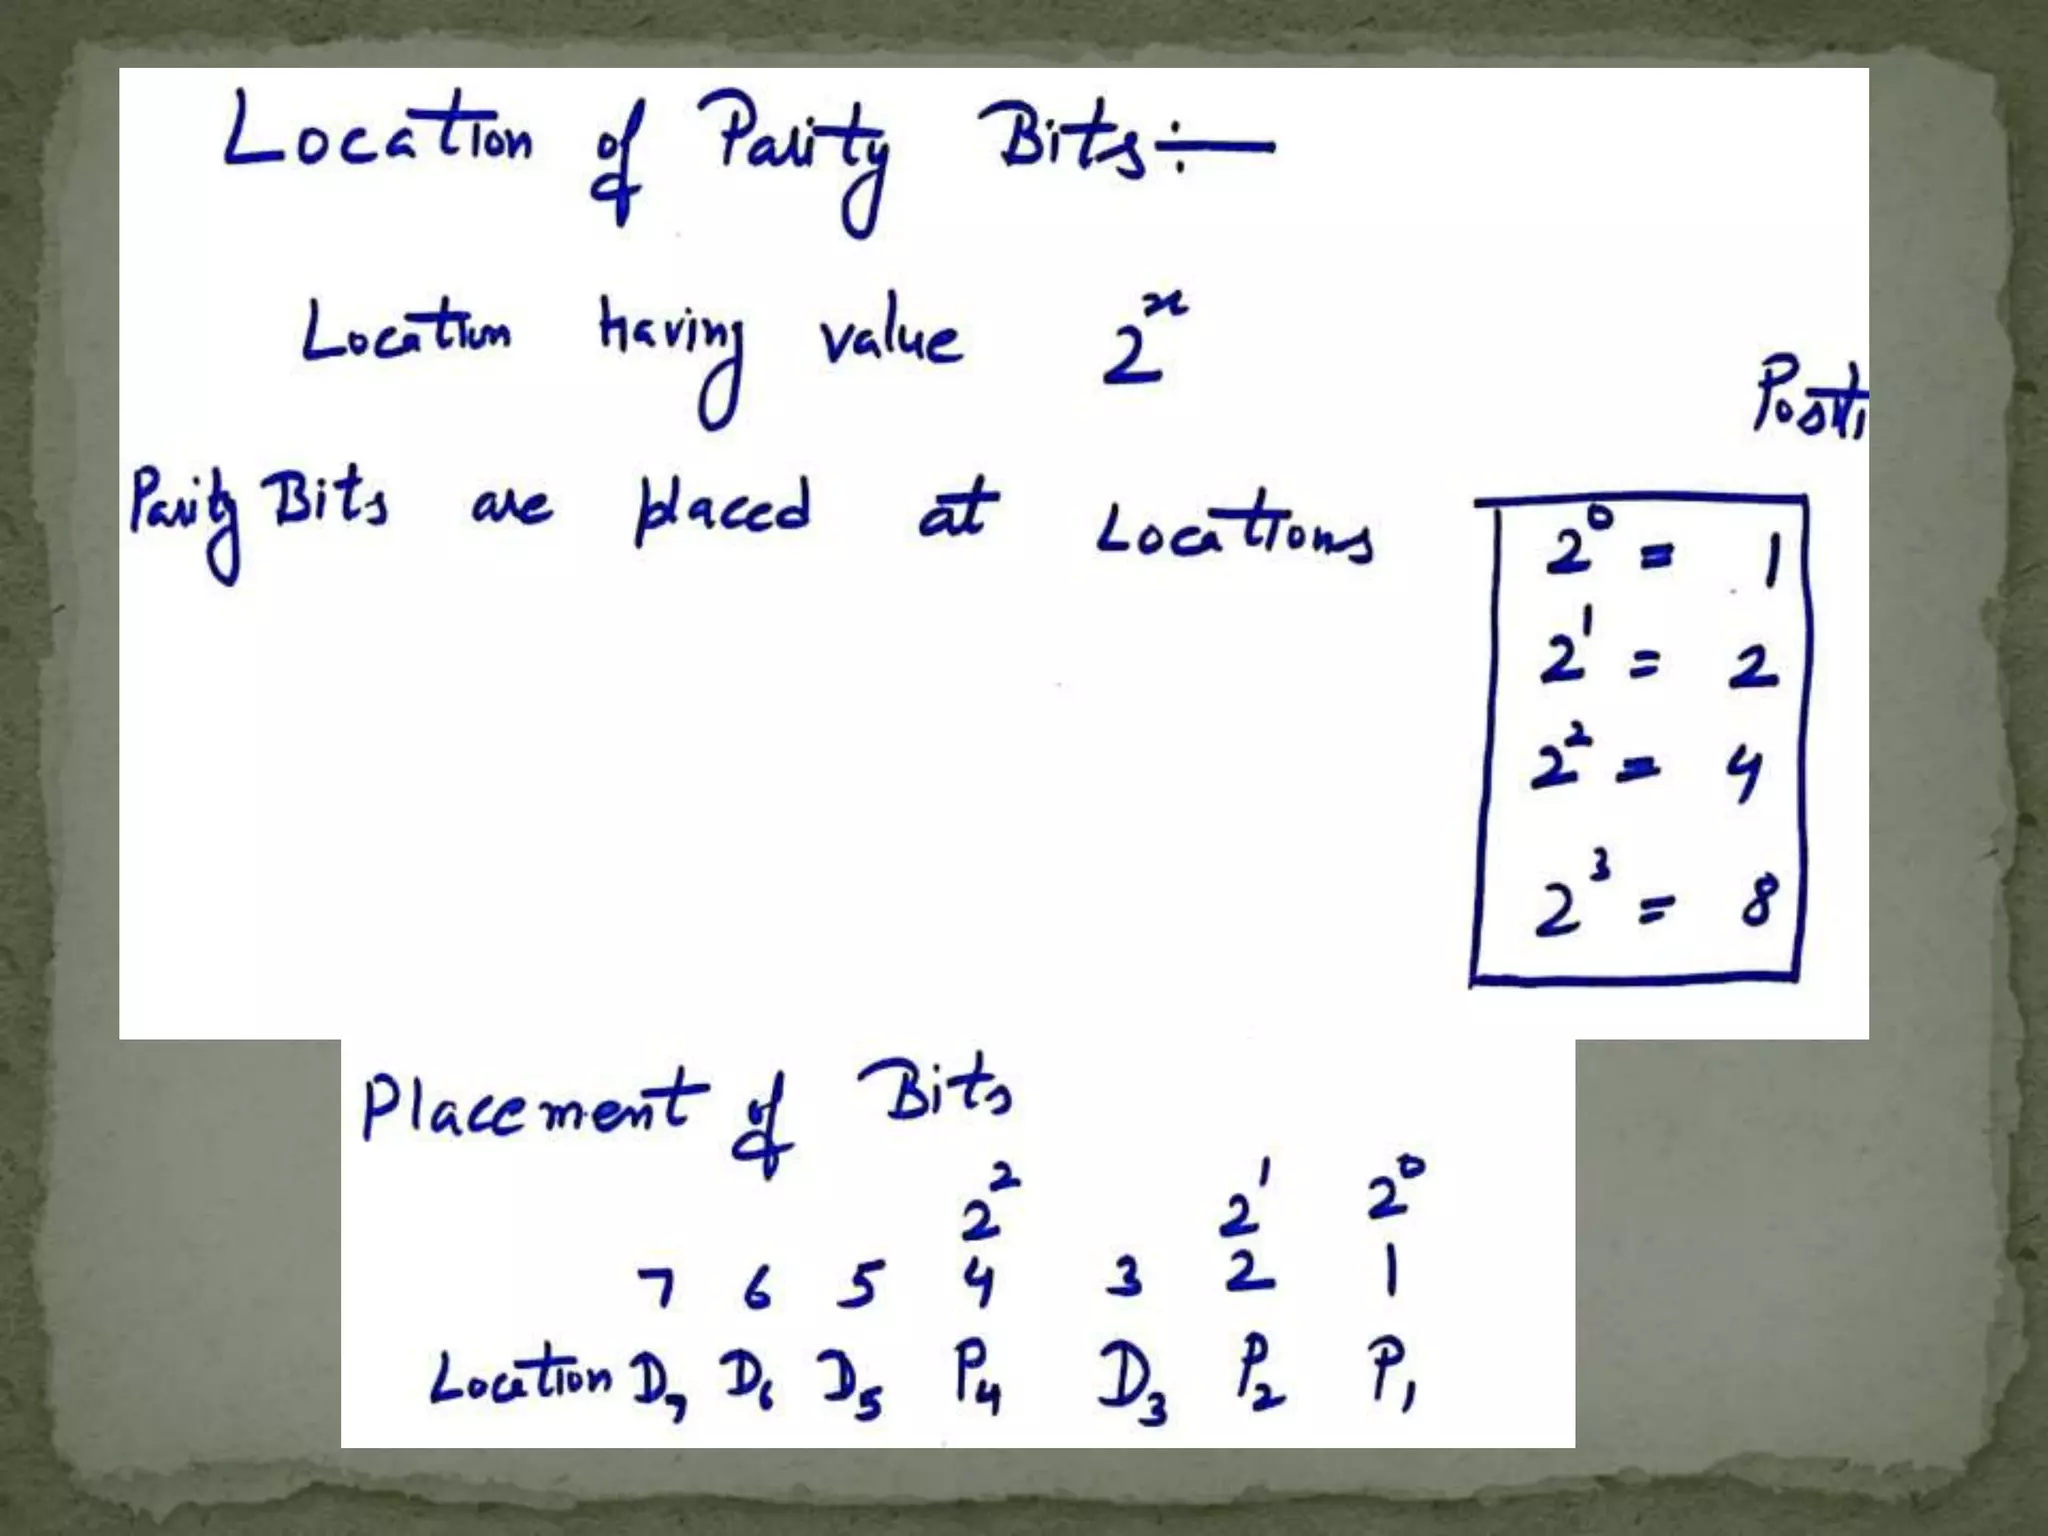 Location of Parity Bits:—
Location having value 2ⁿ
Positi
Parity Bits are placed at Locations
2⁰ = 1
2¹ = 2
2² = 4
2³ = 8
Placement of Bits
2² 2¹ 2⁰
7 6 5 4 3 2 1
Location D₇ D₆ D₅ P₄ D₃ P₂ P₁